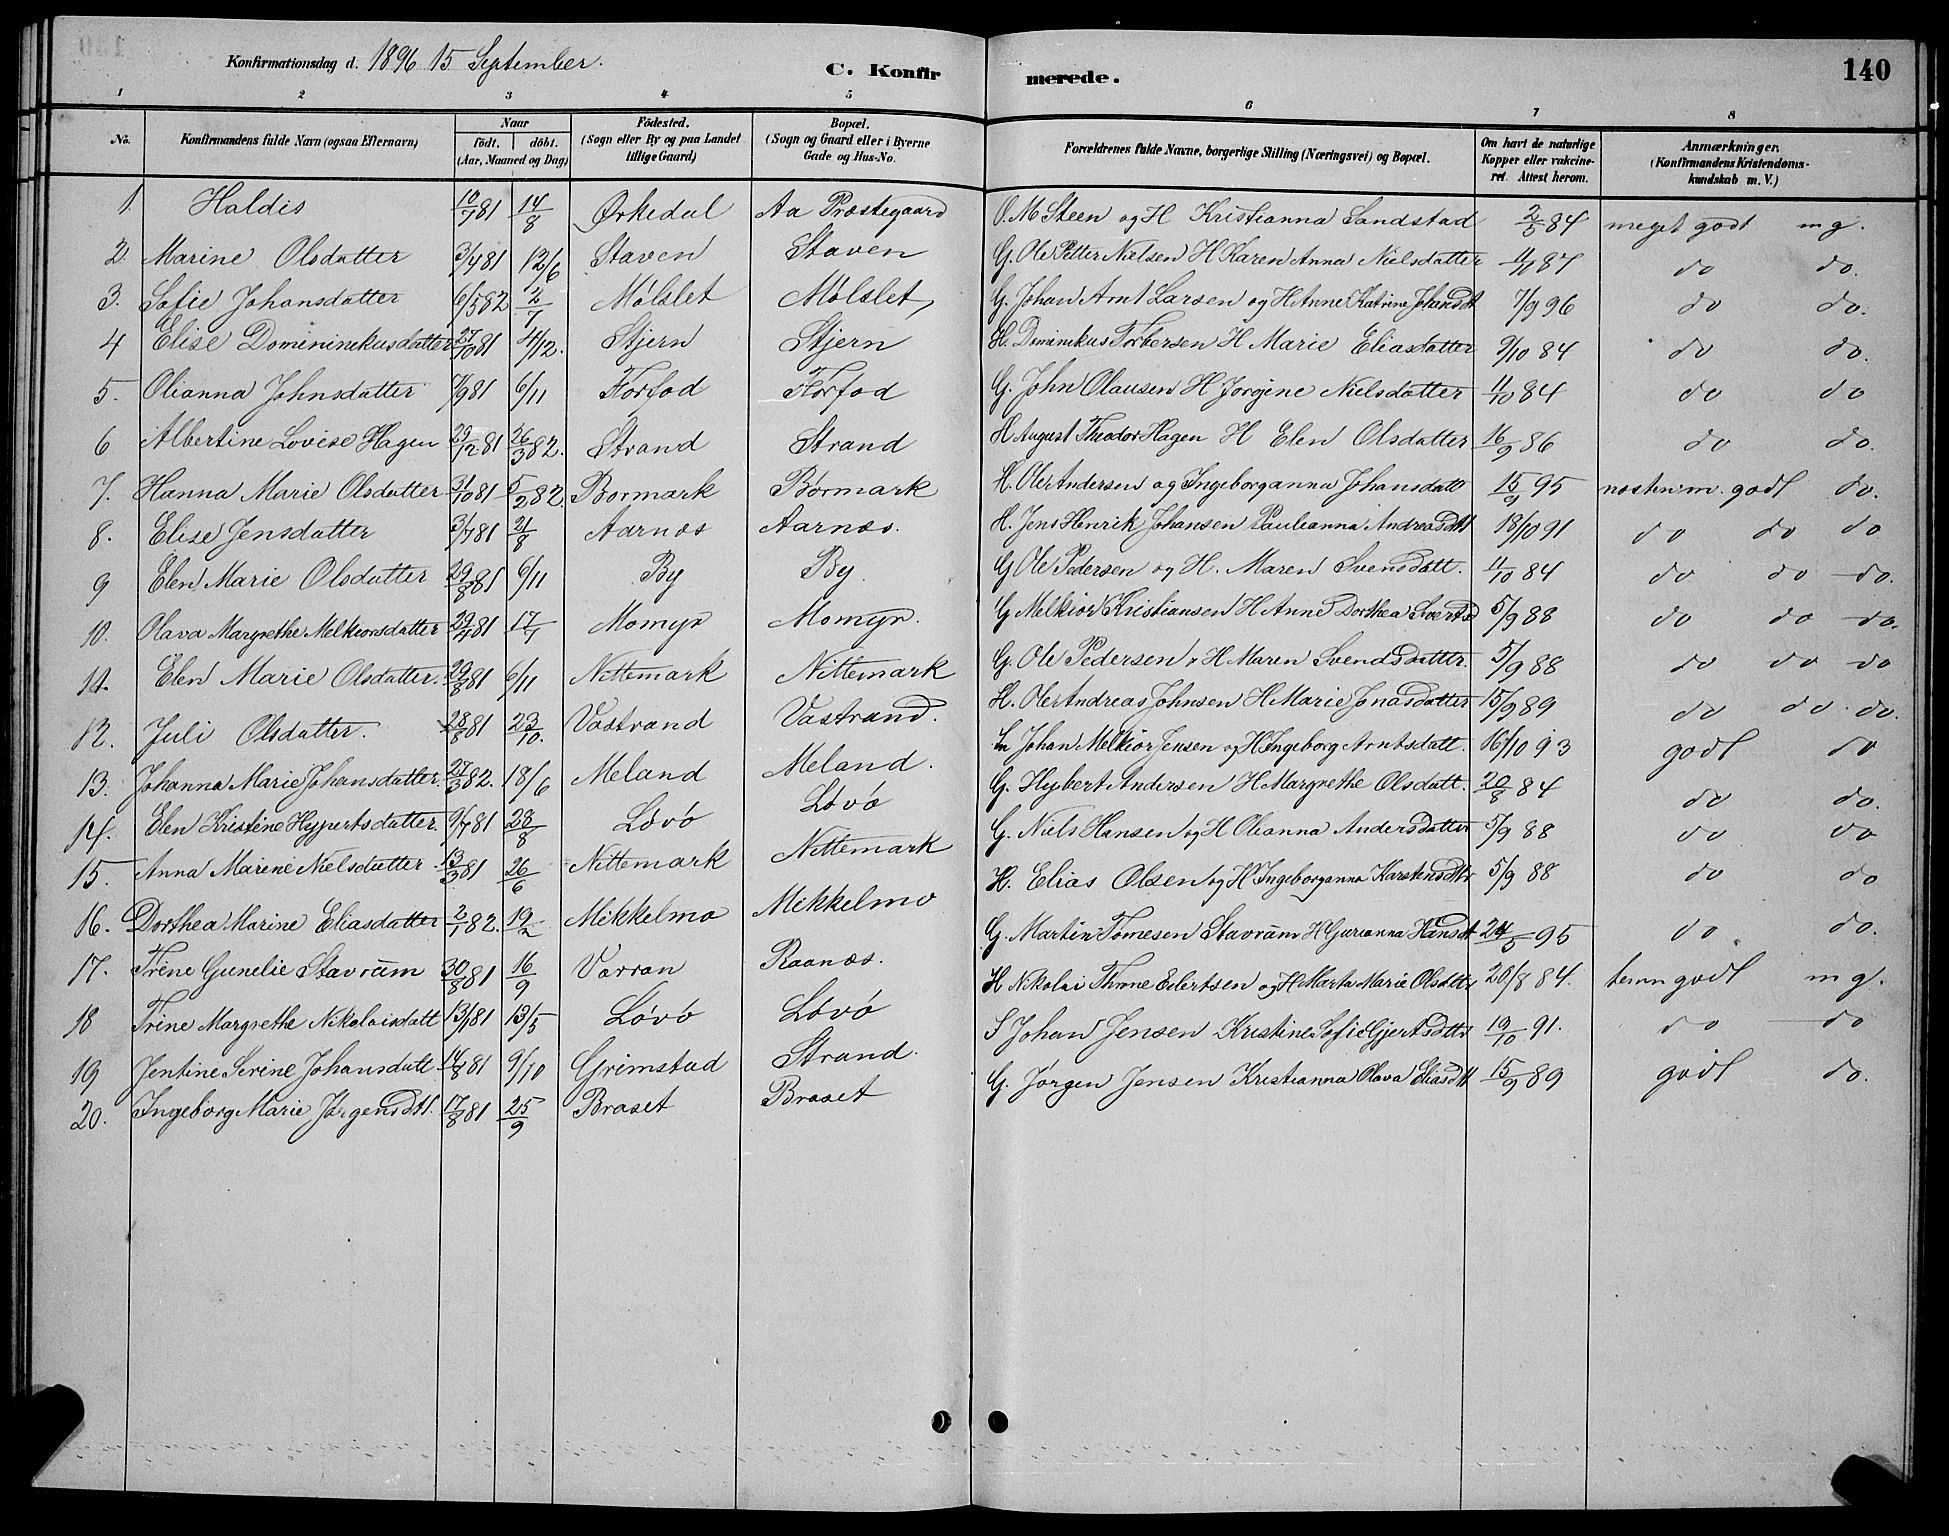 Konfirmationsdag d. 1896 15 September.
C. Konfirmerede.
140
1 2 3 4 5 6 7 8
No. Konfirmandens fulde Navn (ogsaa Efternavn) Naar födt. döbt. (Aar, Maaned og Dag) Födested. (Sogn eller By og paa Landet tillige Gaard) Bopæl. (Sogn og Gaard eller i Byerne Gade og Hus-No. Forældrenes fulde Navne, borgerlige Stilling (Næringsvei) og Bopæl. Om havt de naturlige Kopper eller vakcineret. Attest herom. Anmærkninger. (Konfirmandens Kristendomskundskab m. V.)
1. Haldis 10/7 81 14/8 Ørkedal Aa Præstegaard O. M Steen og H Kristianna Sandstad 2/5 84 meget godt mg.
2. Marine Olsdatter 3/4 81 12/6 Staven Staven G. Ole Petter Nielsen H Karen Anna Nielsdatter 87 do do.
3. Sofie Johansdatter 6/5 82 2/7 Mølslet Mølslet, G. Johan Arnt Larsen og H Anne Katrine Johansdt 7/9 96 do do.
4 Elise Domininekusdatter 27/10 81 4/12. Stjern Stjern H. Dominikus Torbersen H Marie Eliasdatter 9/10 84 do do.
5. Olianna Johnsdatter 7/9 81 6/11 Forfod Forfod G. John Olausen H Jørgine Nielsdatter 11/10 84 do do
6 Albertine Lovise Hagen 29/12 81 26/3 82. Strand Strand H August Theodor Hagen H Elen Olsdatter 16/9 86 do do.
7. Hanna Marie Olsdatter 31/10 81 5/2 82. Bormark Børmark H. Ole Andersen og Ingeborganna Johansdatt 15/9 95 næsten m. godt do.
8. Elise Jensdatter 3/7 81 21/8 Aarnæs Aarnæs. H. Jens Henrik Johansen Paulianna Andreasdtt 18/10 91 do do do
9 Elen Marie Olsdatter 29/8 81 6/11 By By. G Ole Pedersen og H. Maren Svensdatt. 11/10 84 do do do.
10. Olava Margrethe Melkiorsdatter 29/4 81 17/7 Momyr Momyr. G Melkior Kristiansen H Anne Dorthea 5/9 88 do do do.
11. Elen Marie Olsdatter. 29/8 81 6/11 Nittemark Nittemark G. Ole Pedersen H Maren Svendsdatter. 5/9 88 do do do
12. Juli Olsdatter. 28/8 81 23/10. Vastrand Vastrand. H. Ole Andreas Johnsen H Marie Jonasdatter 15/9 89 do do. do.
13. Johanna Marie Johansdatter. 27/3 82. 18/6 Meland Meland. Johan Melkior Jensen og H Ingeborg Arntsdatt. 16/10 93 godt do
14. Elen Kristine Heypertsdatter. 9/7 81 28/8 Løvø Løvø G. Heybert Andersen H Margrethe Olsdatt. 20/8 84 do do.
15. Anna Marine Nielsdatter 13/3 81 26/6 Nittemark Nittemark G. Niels Hansen og H Olianna Andersdatter 5/9 88 do do
16. Dorthea Marine Eliasdatter 2/1 82. 19/2 Mikkelmo Mikkelmo H. Elias Olsen og H Ingeborganna Karstensdtr 5/9 88 do do
17. Trine Gunelie Stavrum 30/8 81 16/9 Varran Raanæs. G. Martin Tomesen Stavrum H Gurianna Hansdt 24/5 95 do do.
18 Trine Margrethe Nikolaisdatt 13/1 81 13/5 Løvø Løvø H Nikolai Thone Eilertsen og H Marta Marie Olsdttr 20/8 84. temn godt mg.
19 Jentine Serine Johansdatt 14/8 81 9/10 Grimstad Strand. S Johan Jensen Kristine Sofie Gjertsdttr 19/10 91. do do
20. Ingeborg Marie Jørgensdtt. 17/8 81 25/9 Braset Braset G. Jørgen Jensen Kristianna Olava Eliasdtt 15/9 89 godt do.